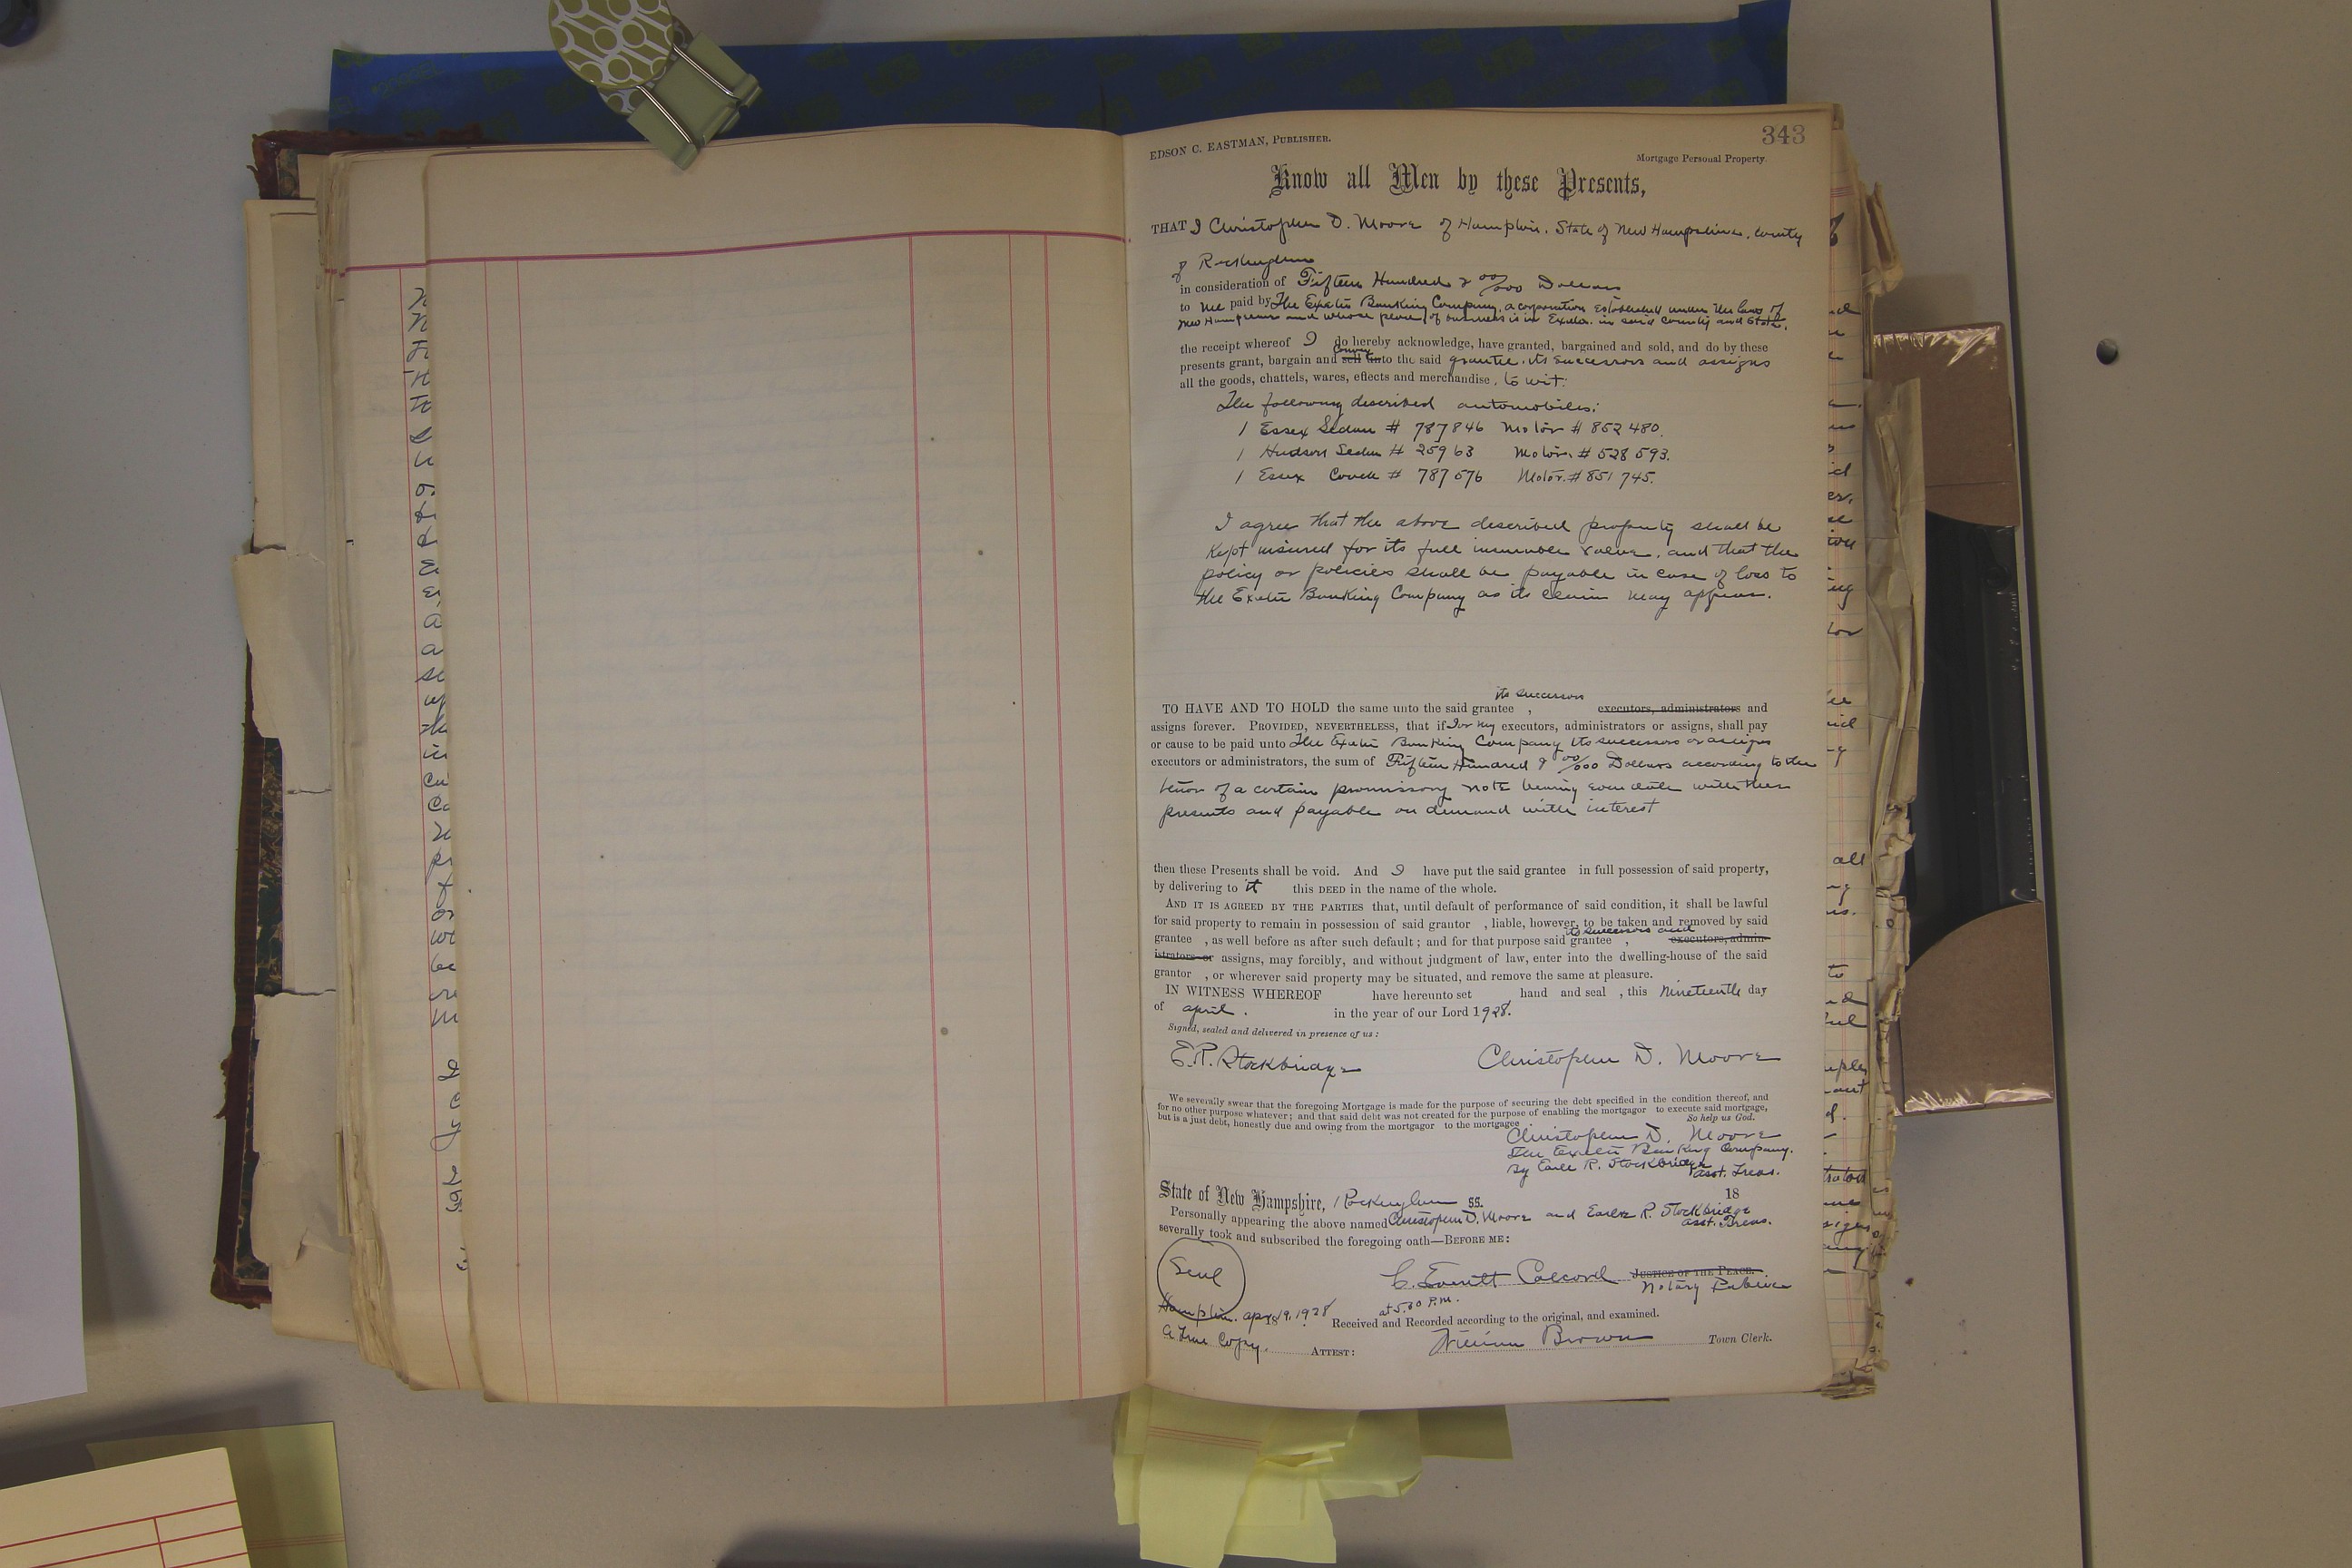 343
EDSON C. EASTMAN, PUBLISHER.
Mortgage Personal Property.
Know all Men by these Presents,
THAT I Christopher D. Moore of Hampton, State of New Hampshire, County
of Rockingham
in consideration of Fifteen Hundred & 00/100 Dollars
to me paid by The Exeter Banking Company, a corporation established under the laws of
New Hampshire and whose place of business is in Exeter in said County and State,
the receipt whereof I do hereby acknowledge, have granted, bargained and sold, and do by these
presents grant, bargain and sell unto the said grantee, its successors and assigns
convey
all the goods, chattels, wares, effects and merchandise, to wit:
The following described automobiles:
1 Essex Sedan # 787846 Motor # 852480.
1 Hudson Sedan # 25963 Motor. # 528593.
1 Essex Coach # 787076 Motor. # 851745.
I agree that the above described property shall be
kept insured for its full insurable value, and that the
policy or policies shall be payable in case of loss to
the Exeter Banking Company as its claim may appear.
its successors
TO HAVE AND TO HOLD the same unto the said grantee , executors, administrators and
assigns forever. PROVIDED, NEVERTHELESS, that if I or my executors, administrators or assigns, shall pay
or cause to be paid unto The Exeter Banking Company its successors or assigns
executors or administrators, the sum of Fifteen Hundred & 00/100 Dollars according to the
tenor of a certain promissory note bearing even date with these
presents and payable on demand with interest
then these Presents shall be void. And I have put the said grantee in full possession of said property,
by delivering to it this DEED in the name of the whole.
AND IT IS AGREED BY THE PARTIES that, until default of performance of said condition, it shall be lawful
for said property to remain in possession of said grantor , liable, however, to be taken and removed by said
its successors and
grantee , as well before as after such default; and for that purpose said grantee , executors, admin-
istrators or assigns, may forcibly, and without judgment of law, enter into the dwelling-house of the said
grantor , or wherever said property may be situated, and remove the same at pleasure.
IN WITNESS WHEREOF have hereunto set hand and seal , this Nineteenth day
of April. in the year of our Lord 1928.
Signed, sealed and delivered in presence of us:
E. R. Stockbridge Christopher D. Moore
We severally swear that the foregoing Mortgage is made for the purpose of securing the debt specified in the condition thereof, and
for no other purpose whatever; and that said debt was not created for the purpose of enabling the mortgagor to execute said mortgage,
but is a just debt, honestly due and owing from the mortgagor to the mortgagee So help us God.
Christopher D. Moore
The Exeter Banking Company.
By Earle R. Stockbridge
Asst. Treas.
State of New Hampshire, Rockingham SS. 18
Personally appearing the above named Christopher D. Moore and Earle R. Stockbridge
Asst. Treas.
severally took and subscribed the foregoing oath—BEFORE ME:
Seal
C. Everitt JUSTICE OF THE PEACE.
Notary Public
Hampton. Apr 19, 1928 at P.M. Received and Recorded according to the original, and examined.
A True Copy. ATTEST: William Brown Town Clerk.